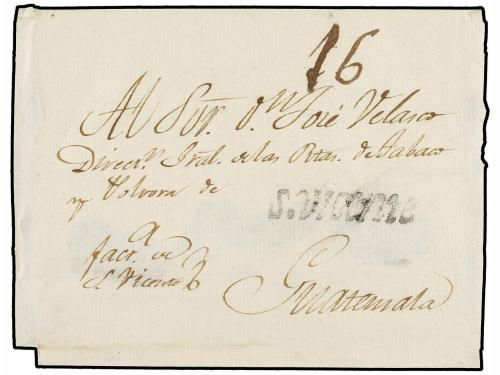 16
Al Sor. Dn. José Velasco
Direcr. Gral. de las Rtas. de Tabaco
y Polvora de
S.VICENTE
a
facr. de
S. Vicente
Guatemala